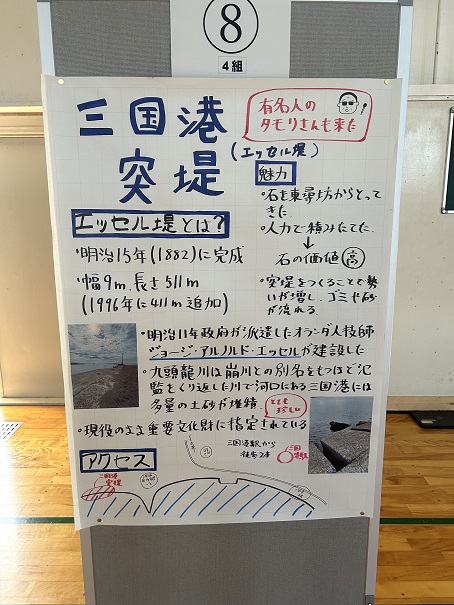 ⑧
4組
三国港
突堤
(エッセル堤)
有名人の
タモリさんも来た
エッセル堤とは?
・明治15年(1882)に完成
・幅9m、長さ511m
(1996年に411m追加)
魅力
・石を東尋坊からとって
きた
・人力で積みたてた
↓
石の価値 高
・突堤をつくることで勢
いが増し、ゴミや砂
が流れる
・明治11年政府が派遣したオランダ人技師
ジョージ・アルノルド・エッセルが建設した
・九頭龍川は崩川との別名をもつほど氾
濫をくり返した川で河口にある三国港には
多量の土砂が堆積
とても
珍しい
・現役のまま重要文化財に指定されている
アクセス
三国港
突堤
三国港駅から
徒歩2分
三国